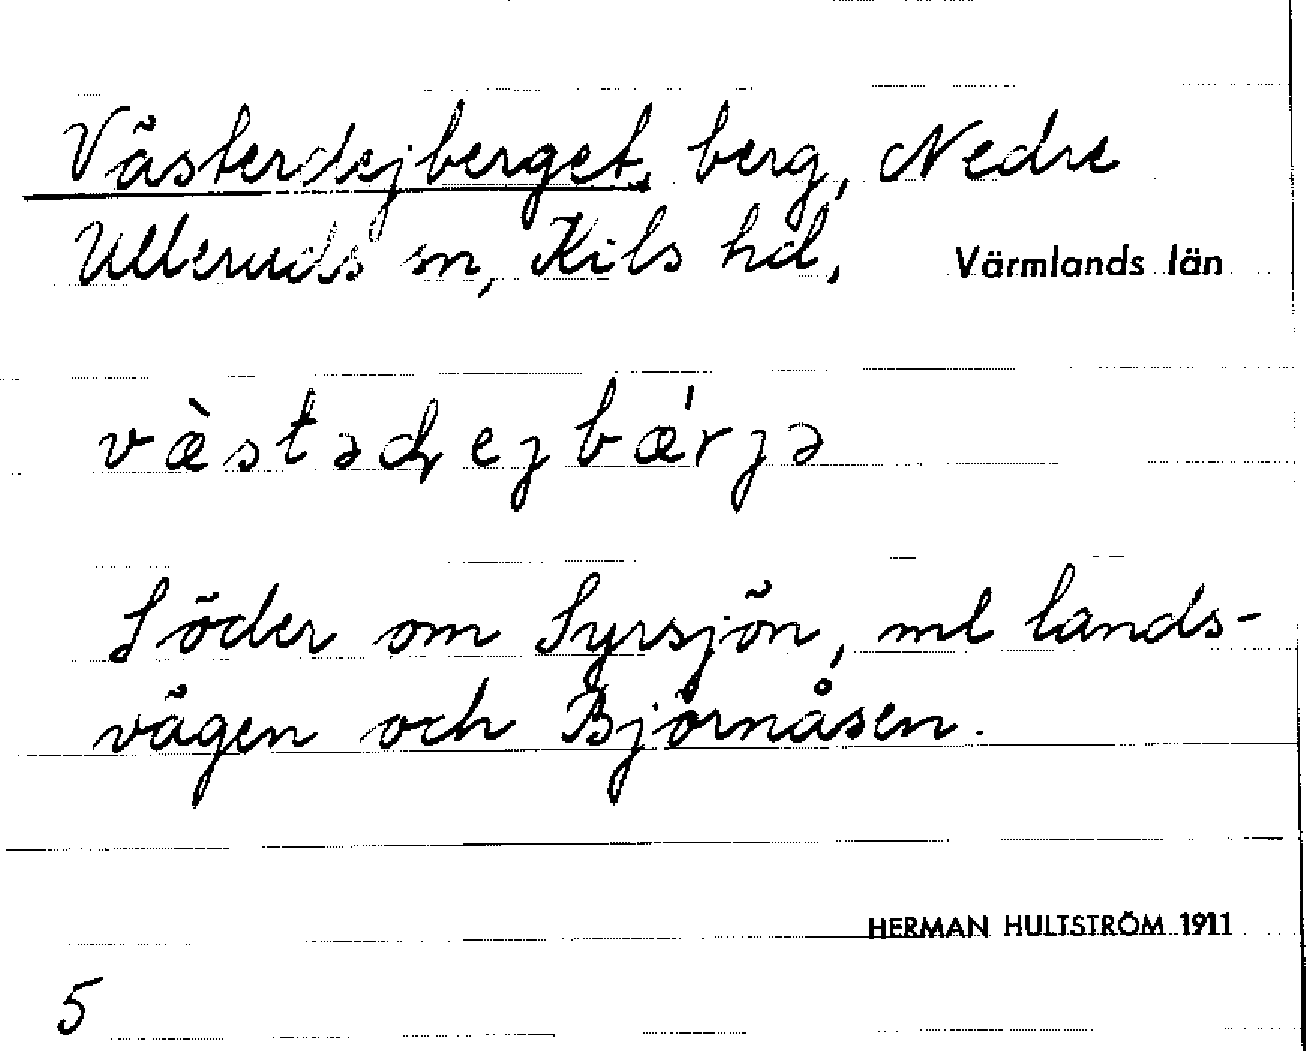 Västerdejberget, berg, Nedre
Ulleruds sn, Kils hd, Värmlands län
væ̀stəɖejbæ'rjə
Söder om Syrsjön, ml lands-
vägen och Björnåsen.
HERMAN HULTSTRÖM 1911
5